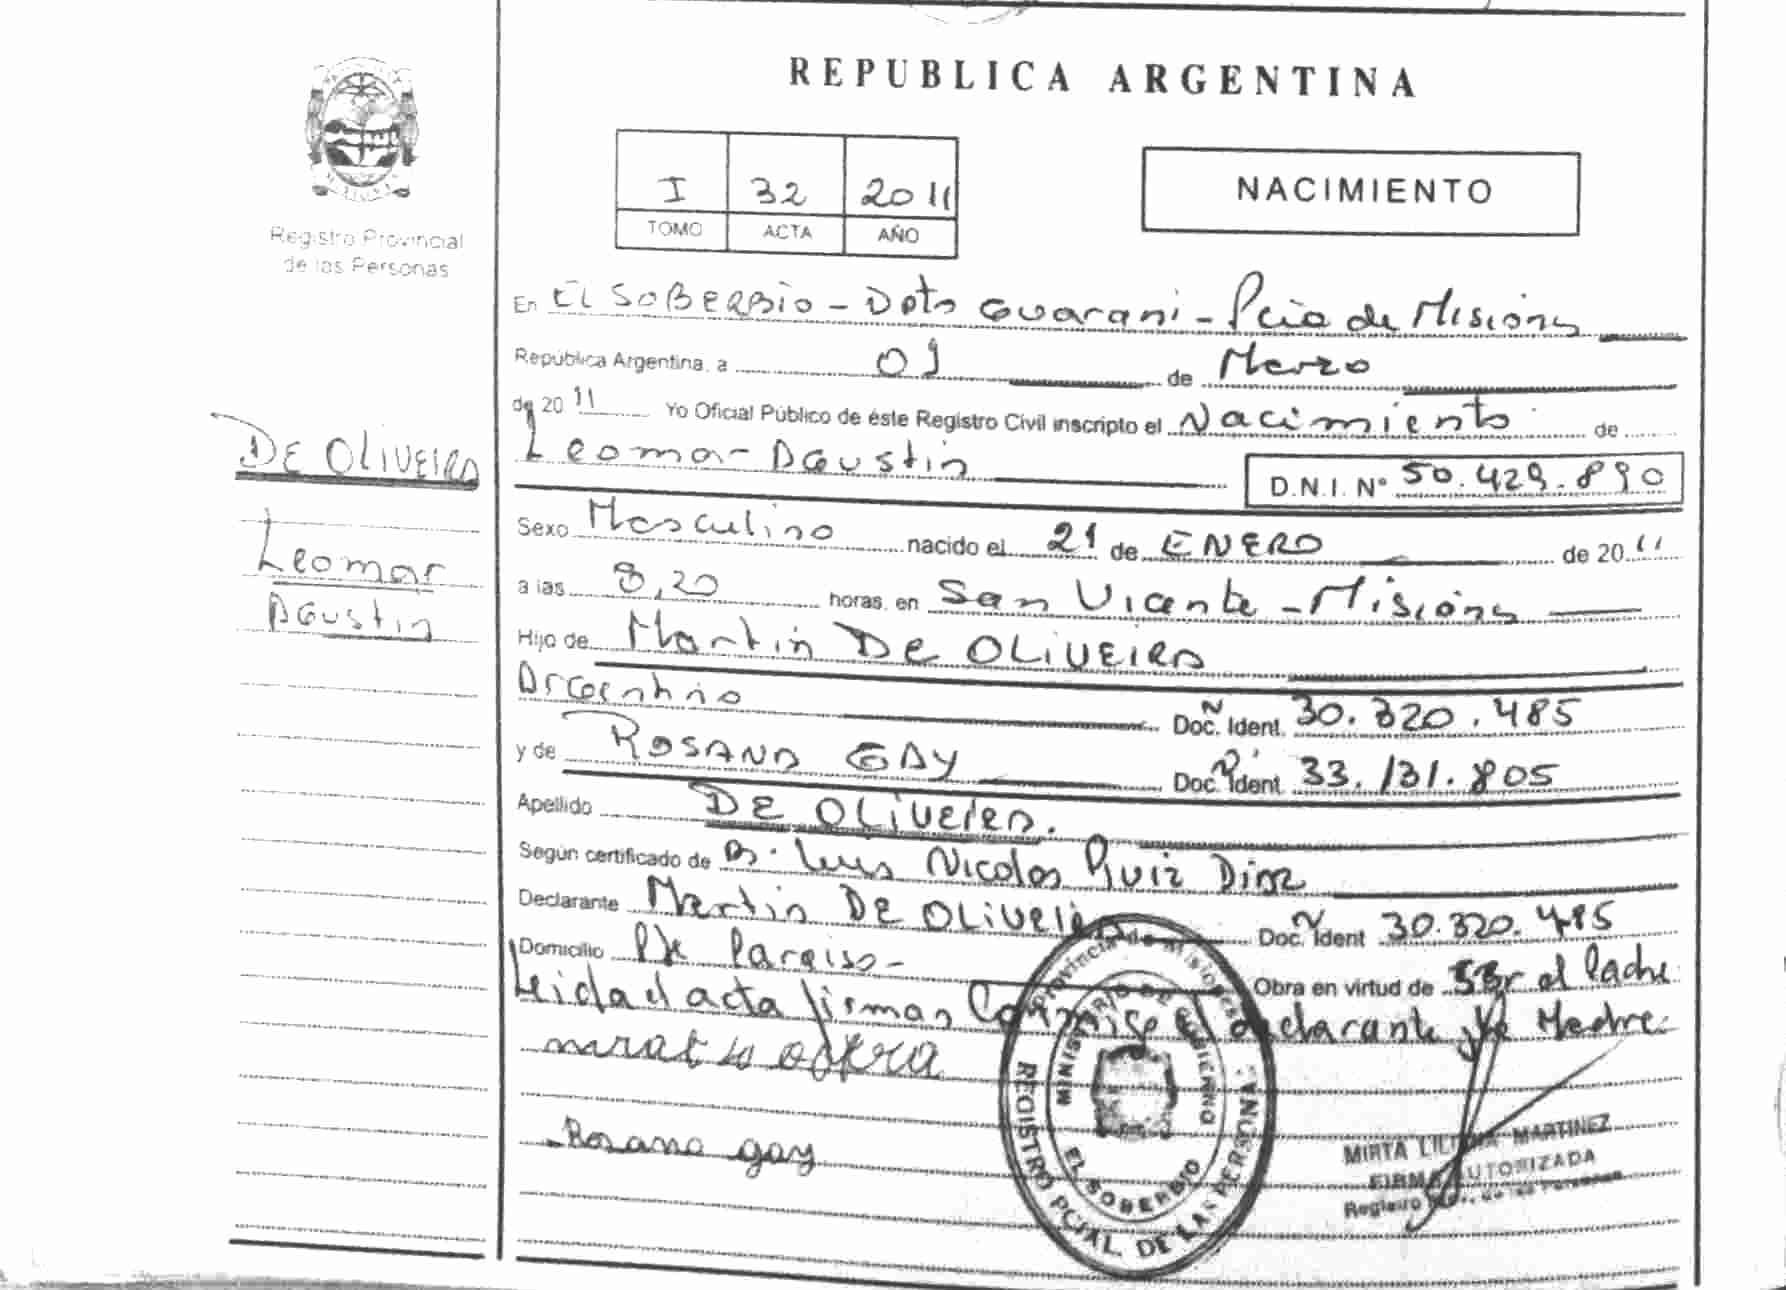 REPUBLICA ARGENTINA
Registro Provincial
de las Personas
I 32 2011
TOMO ACTA AÑO
NACIMIENTO
DE OLIVEIRA
Leomar
Agustin
En EL SOBERBIO - Dpto Guarani - Pcia de Misiones
República Argentina, a 09 de Marzo
de 20 11 Yo Oficial Público de éste Registro Civil inscripto el Nacimiento de
Leomar Agustin D.N.I. Nº 50.429.890
Sexo Masculino nacido el 21 de ENERO de 20 11
a las 8,20 horas, en San Vicente - Misiones
Hijo de Martin DE OLIVEIRA
Argentino Doc. Ident. 30.320.485
y de ROSANA GAY Doc. Ident. 33.131.805
Apellido DE OLIVEIRA.
Según certificado de Dr. Luis Nicolas Ruiz Diaz
Declarante Martin DE OLIVEIRA Doc. Ident 30.320.485
Domicilio Pje Paraiso - Obra en virtud de Ser el Padre
Leida el acta firman Conmigo El declarante y la Madre.
Rosana gay
Provincia de Misiones
MINISTERIO DE GOBIERNO
EL SOBERBIO
REGISTRO PCIAL. DE LAS PERSONAS
MIRTA LILIANA MARTINEZ
FIRMA AUTORIZADA
Registro de las Personas